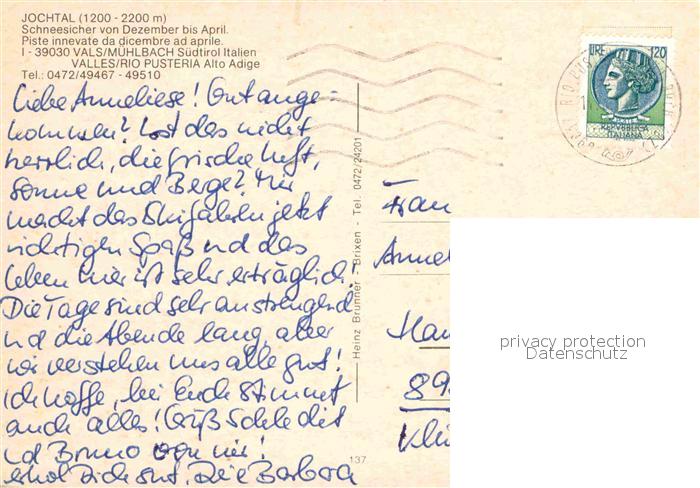 JOCHTAL (1200 - 2200 m)
Schneesicher von Dezember bis April.
Piste innevate da dicembre ad aprile.
I - 39030 VALS/MÜHLBACH Südtirol Italien
VALLES/RIO PUSTERIA Alto Adige
Tel.: 0472/49467 - 49510
Liebe Anneliese! Gut ange-
kommen? Ist das nicht
herrlich, die frische Luft,
Sonne und Berge? Mir
macht das Skifahren jetzt
richtigen Spaß und das
Leben hier ist sehr erträglich!
Die Tage sind sehr anstrengend
und die Abende lang, aber
wir verstehen uns alle gut!
Ich hoffe, bei Euch stimmt
auch alles! Grüß
und Bruno von mir!
Erhol Dich gut. Deine Barbara
Heinz Brunner - Brixen - Tel. 0472/24201
137
LIRE 120
REPVBBLICA
ITALIANA
Frau
Annel
Hau
89
Kli
privacy protection
Datenschutz